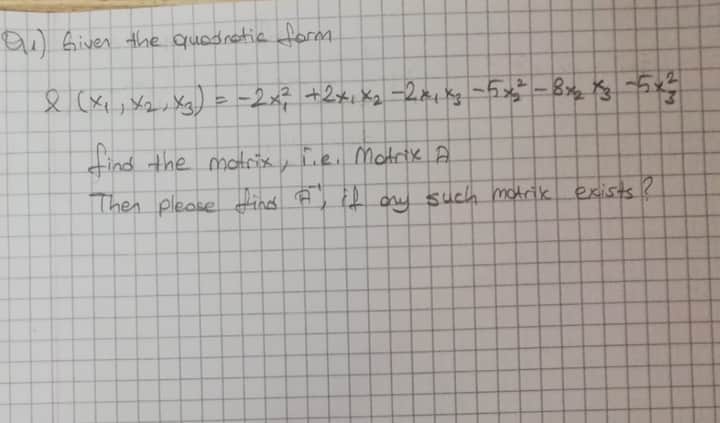 Q1) Given the quadratic form
Q (x₁, x₂, x₃) = -2x₁² + 2x₁x₂ - 2x₁x₃ - 5x₂² - 8x₂x₃ - 5x₃²
find the matrix, i.e. Matrix A
Then please find A⁻¹, if any such matrix exists?